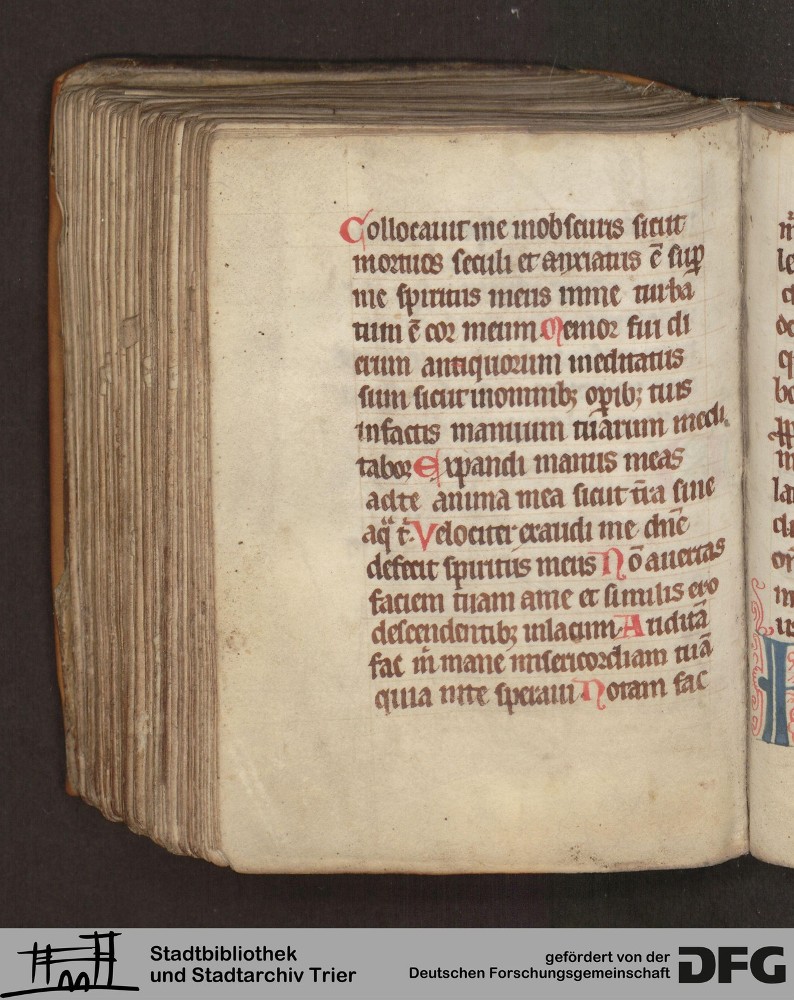 Collocauit me inobscuris sicut
mortuos seculi et anxiatus ē sup̄
me spiritus meus inme turba
tum ē cor meum Memor fui di
erum antiquorum meditatus
sum sicut inomnibꝫ op̄ibꝫ tuis
infactis manuum tuārum medi
tabor Expandi manus meas
adte anima mea sicut t̄ra sine
aq̄ t᷑. Velociter exaudi me dn̄e
defecit spiritus meus Nō auertas
faciem tuam ame et similis ero
descendentibꝫ inlacum Auditā
fac m̄ mane misericordiam tuā
quia inte speraui Notam fac
Stadtbibliothek
und Stadtarchiv Trier
gefördert von der
Deutschen Forschungsgemeinschaft
DFG